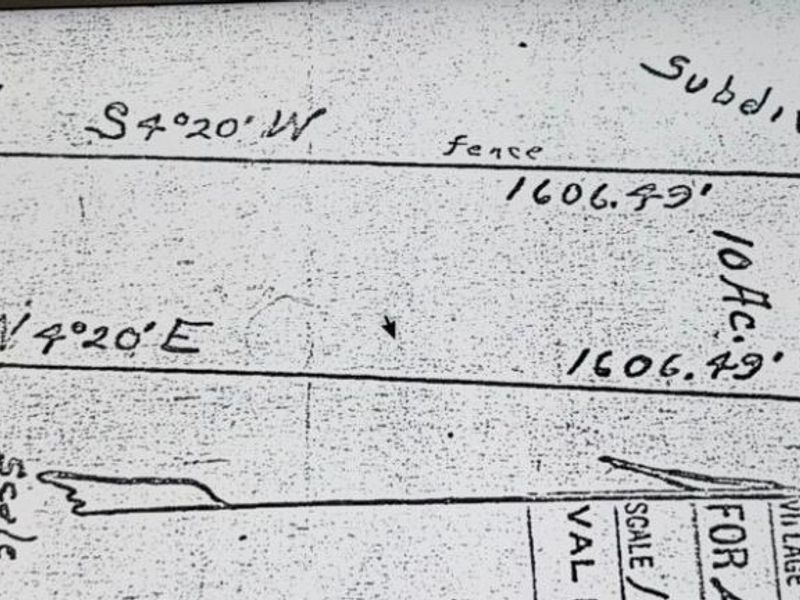 Subdiv
S 4°20' W
fence
1606.49'
10 Ac.
N 4°20' E
1606.49'
VAL
SCALE 1
FOR
VILLAGE